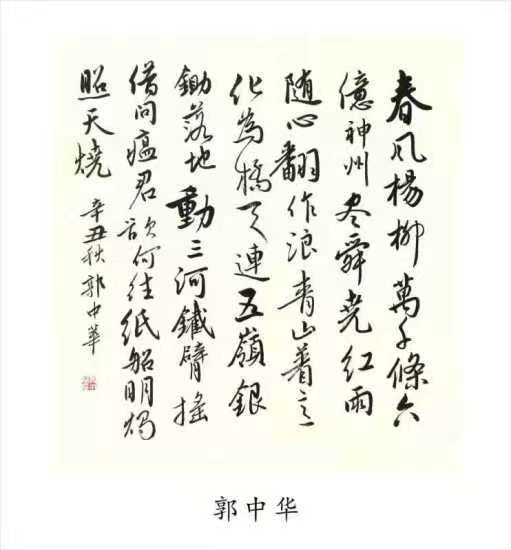 春风楊柳萬千條六
億神州尽舜尧红雨
随心翻作浪青山着意
化為橋天連五嶺銀
鋤落地動三河鐵臂摇
借问瘟君欲何往紙船明燭
照天燒 辛丑秋郭中華
郭中华